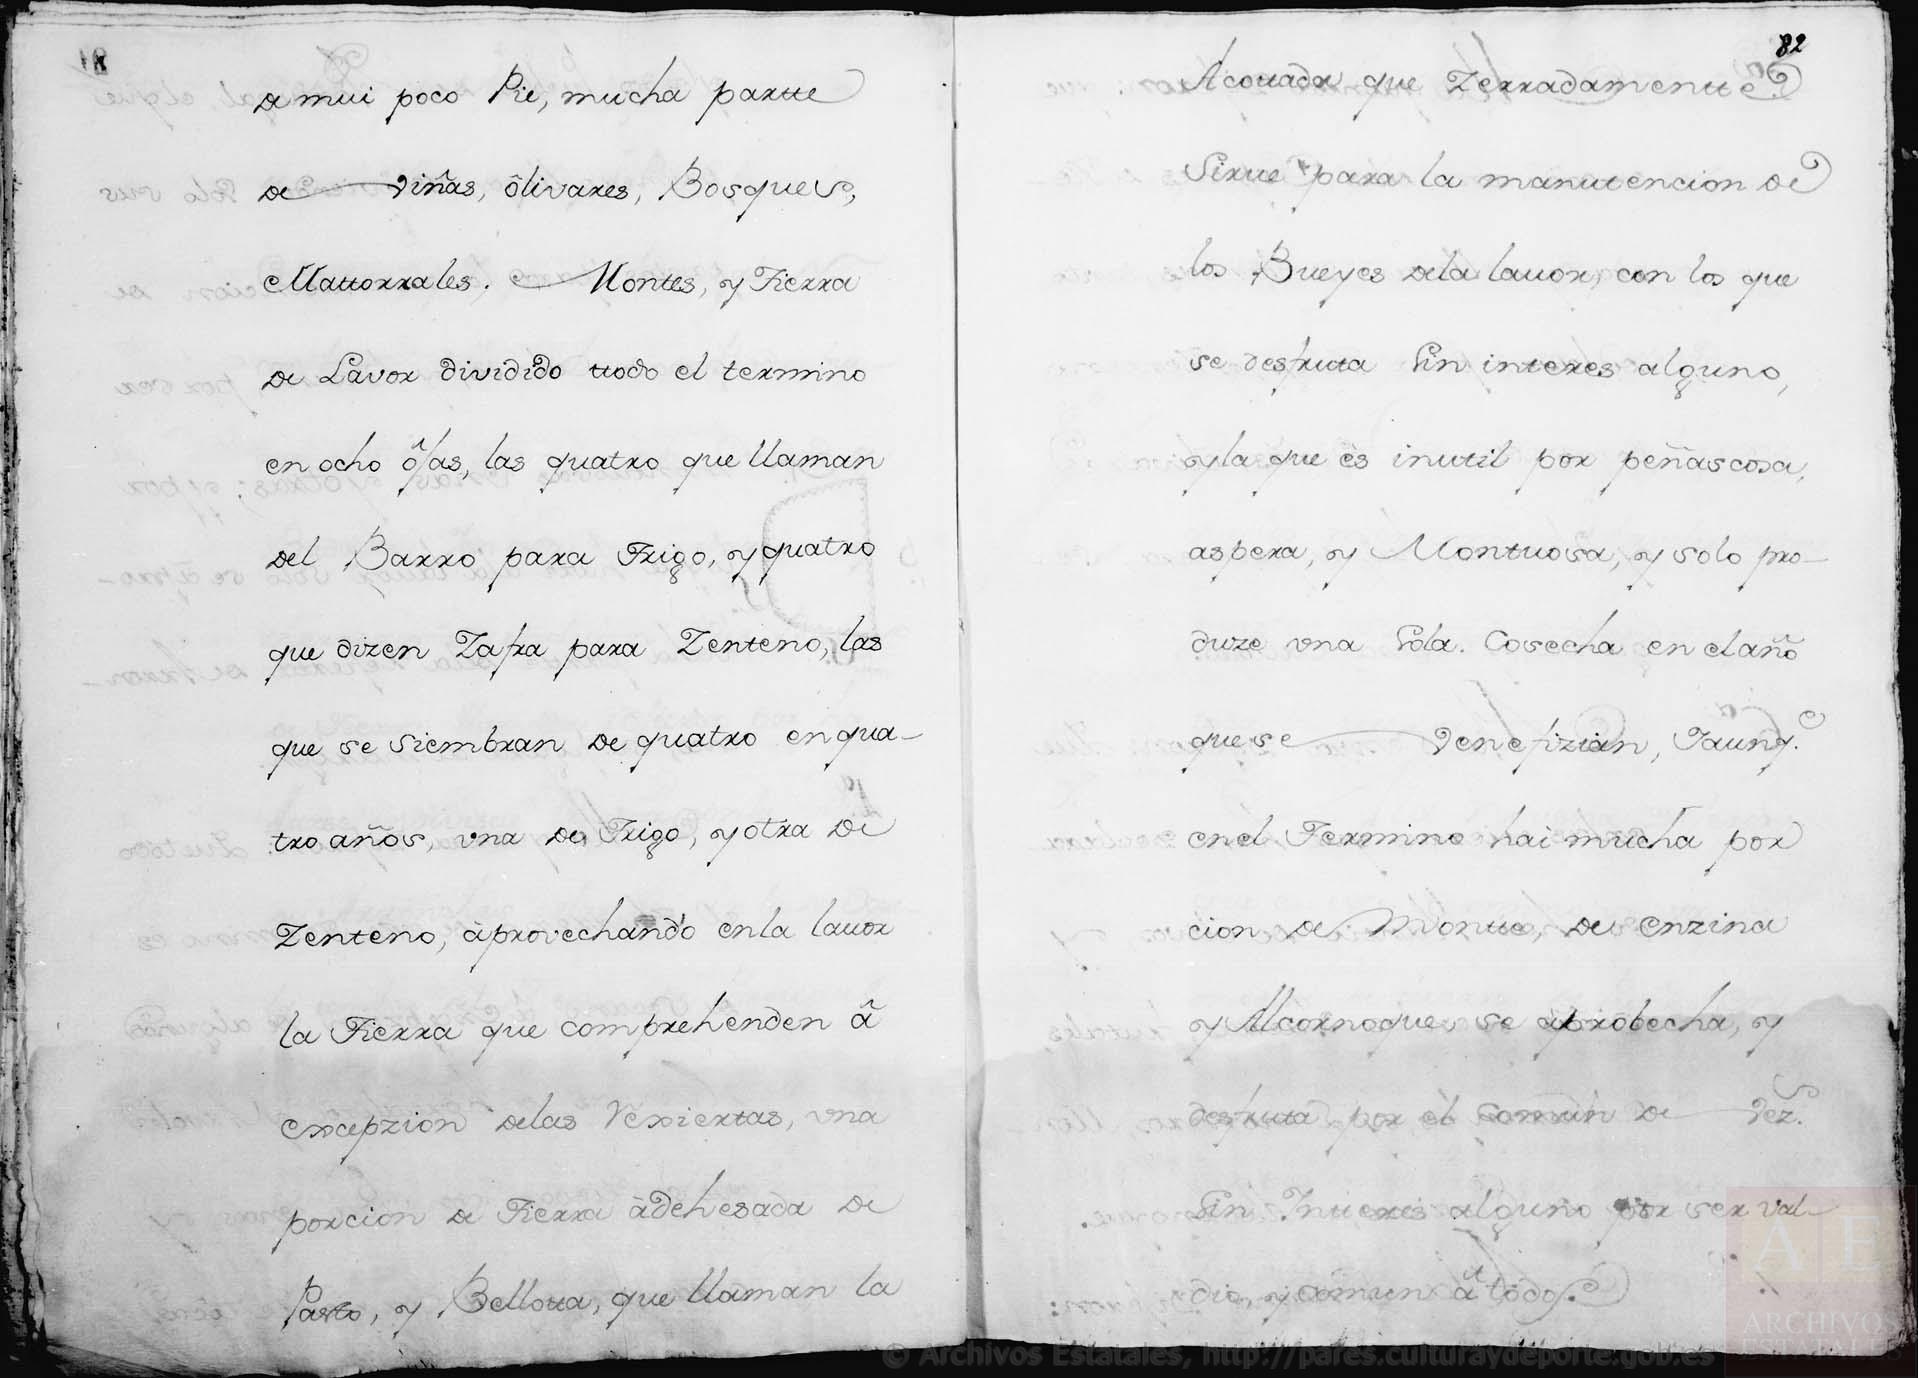 a mui poco Pie, mucha partte
de viñas, ôlivares, Bosques,
Mattorrales. Montes, y Tierra
de Lavor dividido ttodo el termino
en ocho ôjas, las quatro que llaman
del Barro para Trigo, y quatro
que dizen Zafra para Zenteno, las
que se siembran de quatro en qua-
tro años, vna de Trigo, y otra de
Zenteno, àprovechando en la lauor
la Tierra que comprehenden â
excepzion de las Vexiertas, vna
porcion de Tierra àdehesada de
Pasto, y Bellotta, que llaman la
82
Acottada que Zerradamentte
Sirue para la manutencion de
los Bueyes de la lauor, con los que
se desfruta Sin interes alguno,
y la que ès inutil por peñascosa,
aspera, y Montuosa, y solo pro-
duze vna Sola. Cosecha en el año
que se venefizian, Jaunq.e
en el Termino hai mucha por
cion de Montte, de enzina
y Alcornoque, se aprobecha, y
desfruta por èl Comun de vez.s
Sin Interes alguno por ser val-
dio, y comun â todos.
© Archivos Estatales, http://pares.culturaydeporte.gob.es
AE
ARCHIVOS
ESTATALES